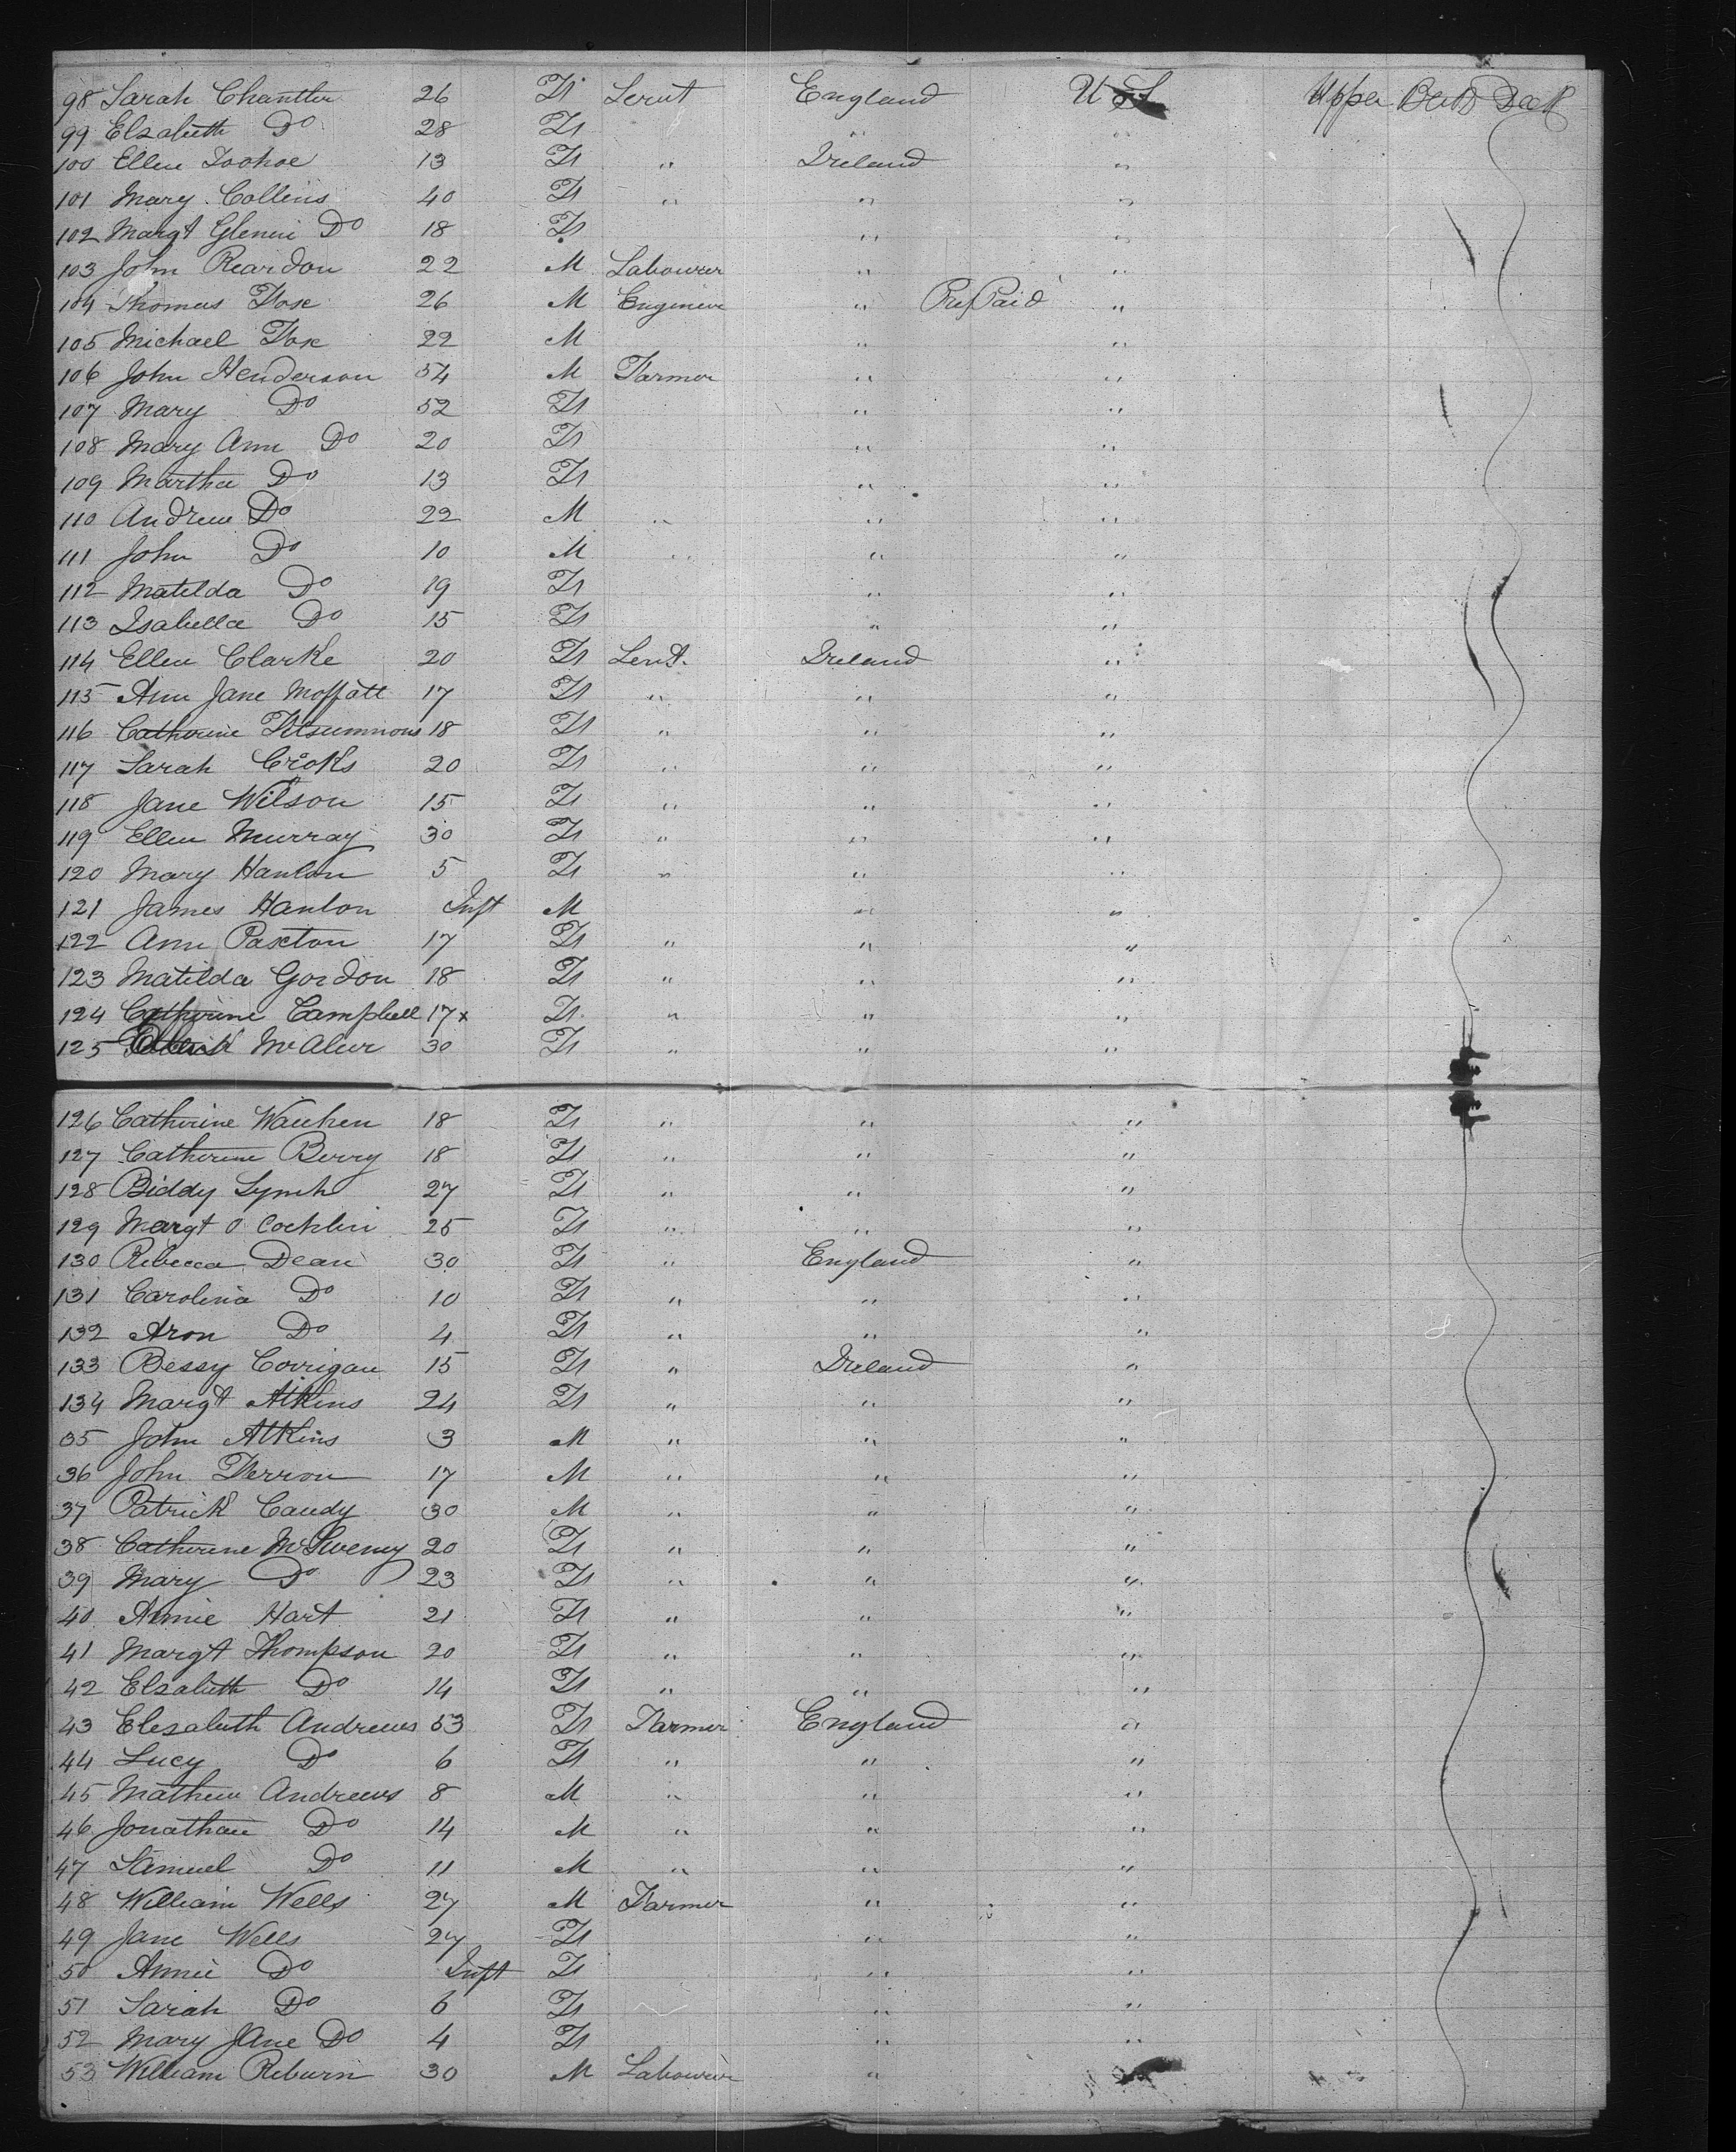 98 Sarah Chantler 26 F Servt England U S Upper Betw Deck
99 Elsabeth Do 28 F " "
100 Ellen Toohoe 13 F " Ireland "
101 Mary Collins 40 F " " "
102 Margt Do 18 F " "
103 John Reardon 22 M Labourer " "
104 Thomas Fox 26 M Engineer " Pre Paid "
105 Michael Fox 22 M " "
106 John Henderson 54 M Farmer " "
107 Mary Do 52 F " "
108 Mary Ann Do 20 F " "
109 Martha Do 13 F " "
110 Andrew Do 22 M " " "
111 John Do 10 M " " "
112 Matilda Do 19 F " "
113 Isabella Do 15 F " "
114 Ellen Clarke 20 F Servt. Ireland "
115 Ann Jane Moffatt 17 F " " "
116 Catherine Fitsummons 18 F " " "
117 Sarah Croks 20 F " " "
118 Jane Wilson 15 F " " "
119 Ellen Murray 30 F " " "
120 Mary Hanlon 5 F " " "
121 James Hanlon Inft M " "
122 Ann Paxton 17 F " " "
123 Matilda Gordon 18 F " " "
124 Catherine Campbell 17 x F " " "
125 McAleer 30 F " " "
126 Catherine Wauhen 18 F " " "
127 Catherine Berry 18 F " " "
128 Biddy Lynch 27 F " " "
129 Margt O Cocklin 25 F " " "
130 Rebecca Dean 30 F " England "
131 Carolina Do 10 F " " "
132 Aron Do 4 F " " "
133 Bessy Corrigan 15 F " Ireland "
134 Margt Atkins 24 F " " "
35 John Atkins 3 M " " "
36 John Ferron 17 M " " "
37 Patrick Caudy 30 M " " "
38 Catherine McSweny 20 F " " "
39 Mary Do 23 F " " "
40 Annie Hart 21 F " " "
41 Margt Thompson 20 F " " "
42 Elsabeth Do 14 F " " "
43 Elesabeth Andrews 53 F Farmer England "
44 Lucy Do 6 F " " "
45 Mathew Andrews 8 M " " "
46 Jonathan Do 14 M " " "
47 Samuel Do 11 M " " "
48 William Wells 27 M Farmer " "
49 Jane Wells 27 F " "
50 Annie Do Inft F " "
51 Sarah Do 6 F " "
52 Mary Jane Do 4 F " "
53 William Reburn 30 M Labourer "